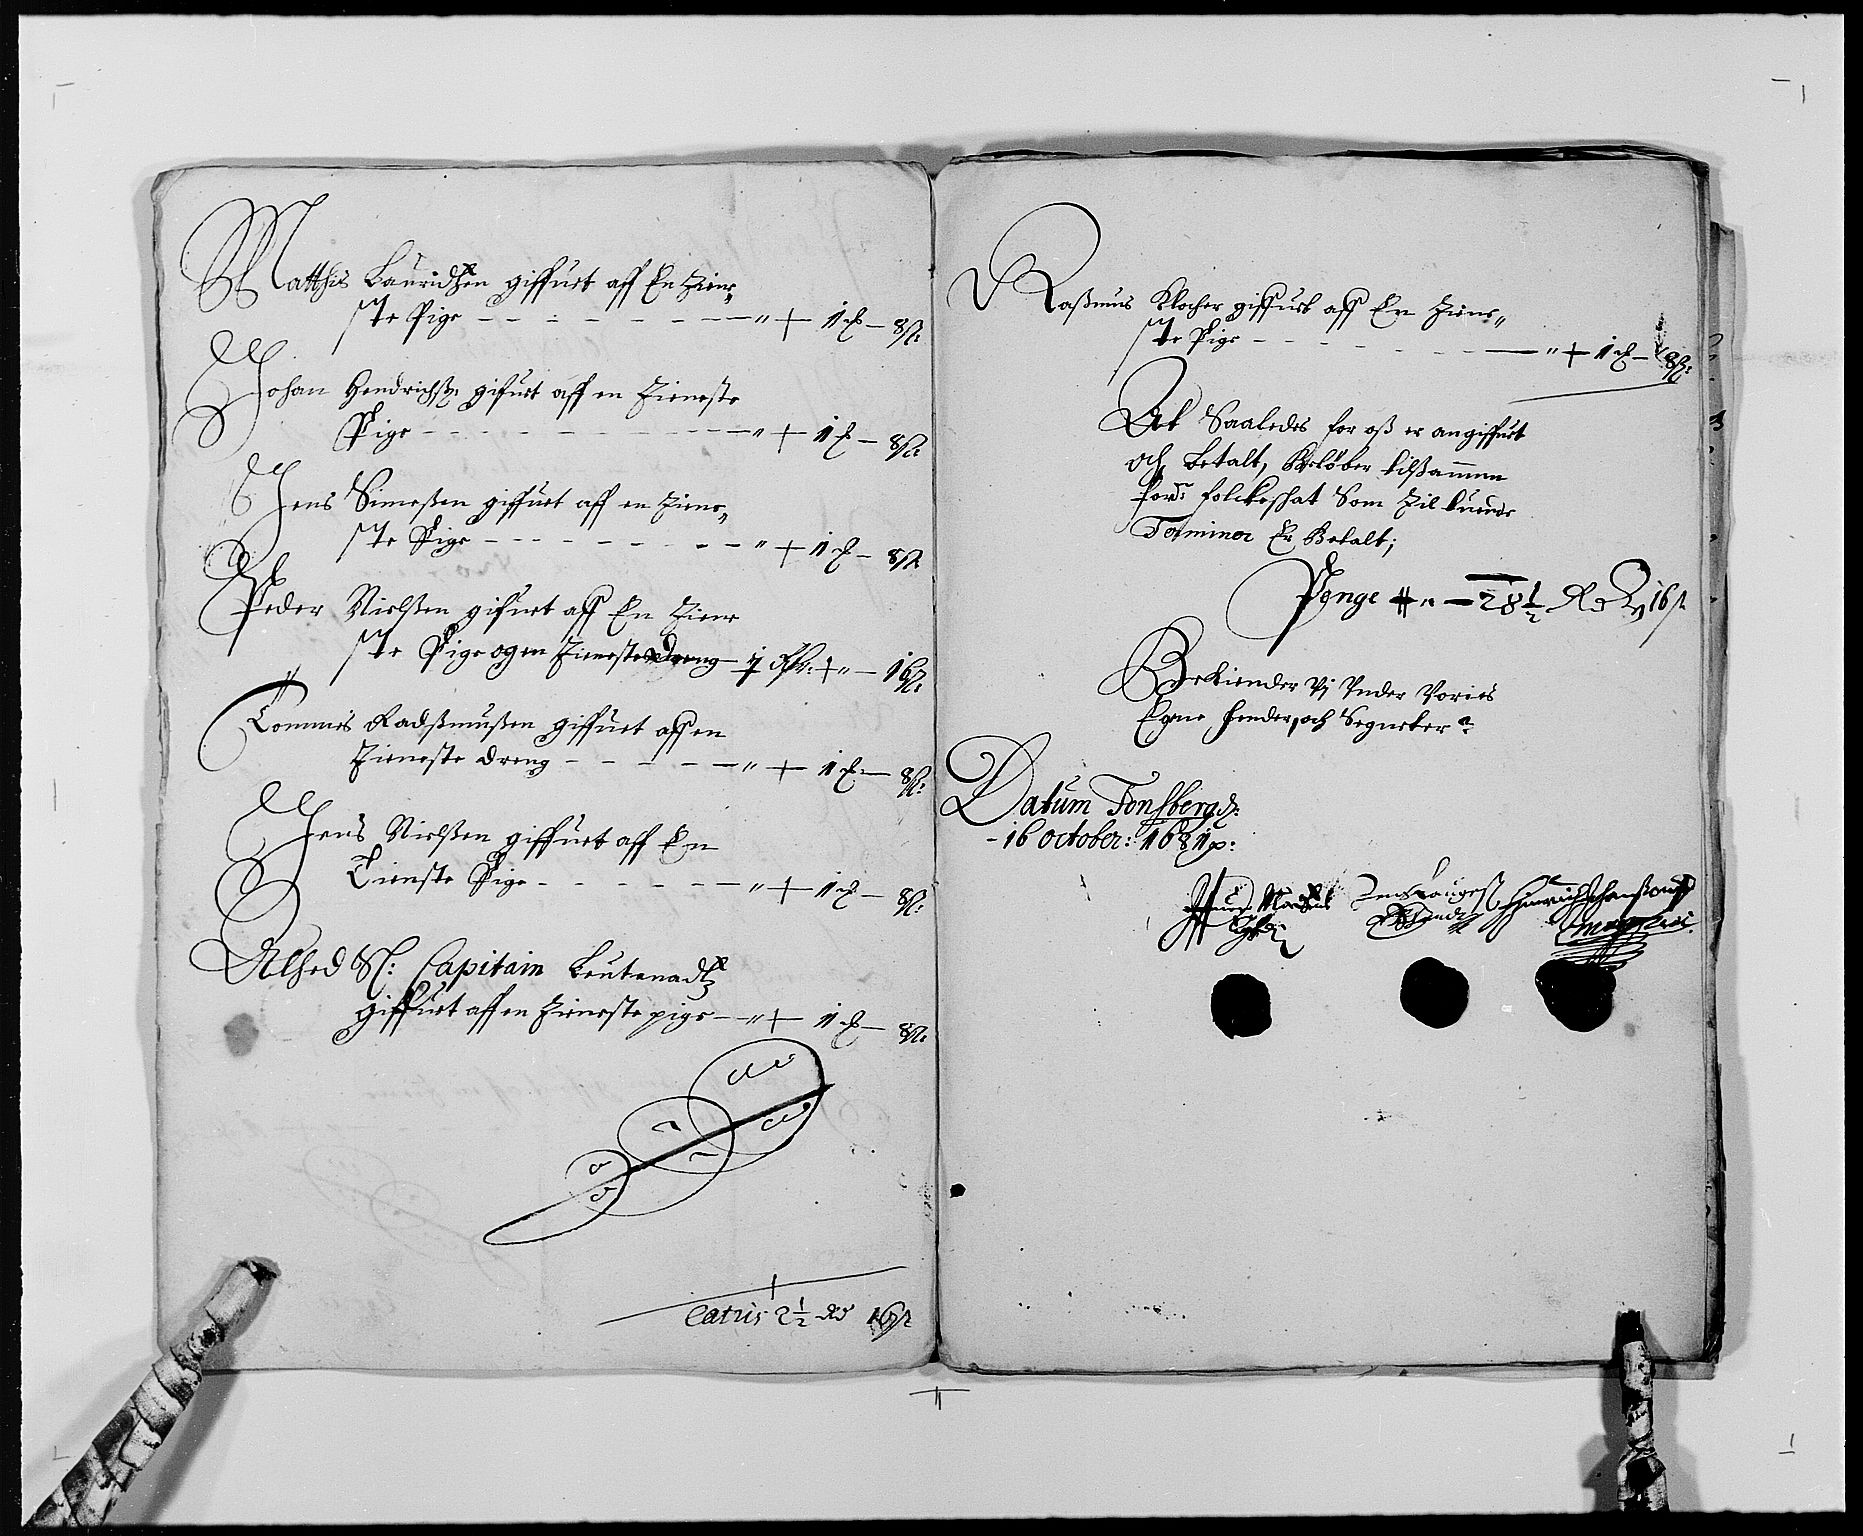 Matthis Lauridtzen giffuet aff En Tiene„
ste Pige - - - - - - - - " + 1 ℔ – 8 ß:
Johan Hendrichß: gifuet aff en Tieneste
Pige - - - - - - - - " + 1 ℔ – 8 ß:
Jens Simeßen giffuet aff en Tiene„
ste Pige - - - - - - - - " + 1 ℔ – 8 ß
Peder Nielßen gifuet aff En Tiene
ste Pige og en Tieneste dreng – 1 – 16 ß:
Tommis Radßmußen giffuet aff en
Tieneste dreng - - - - - - " + 1 ℔ – 8 ß:
Jens Nielßen giffuet aff En
Tieneste Pige - - - - - - " + 1 ℔ – 8 ß:
Alhed Sl: Capitain Leutenadtz
giffuet aff en Tieneste pige – " + 1 ℔ – 8 ß:
Latus 2½ Rd 16 ß
Raßmus Klocher giffuet aff En Tiene„
ste Pige - - - - - - - - " + 1 ℔ – 8 ß:
At Saaledes for oß er angiffuet
och betalt, beløber tilßammen
for: folckeschat Som Til huer
Terminer Er Betalt;
Penge – 28½ Rd 16 ß
Bekiender Vj Under Voris
Egne hender, och Segneter
Datum Tonsberg d:
- 16 October: 1681